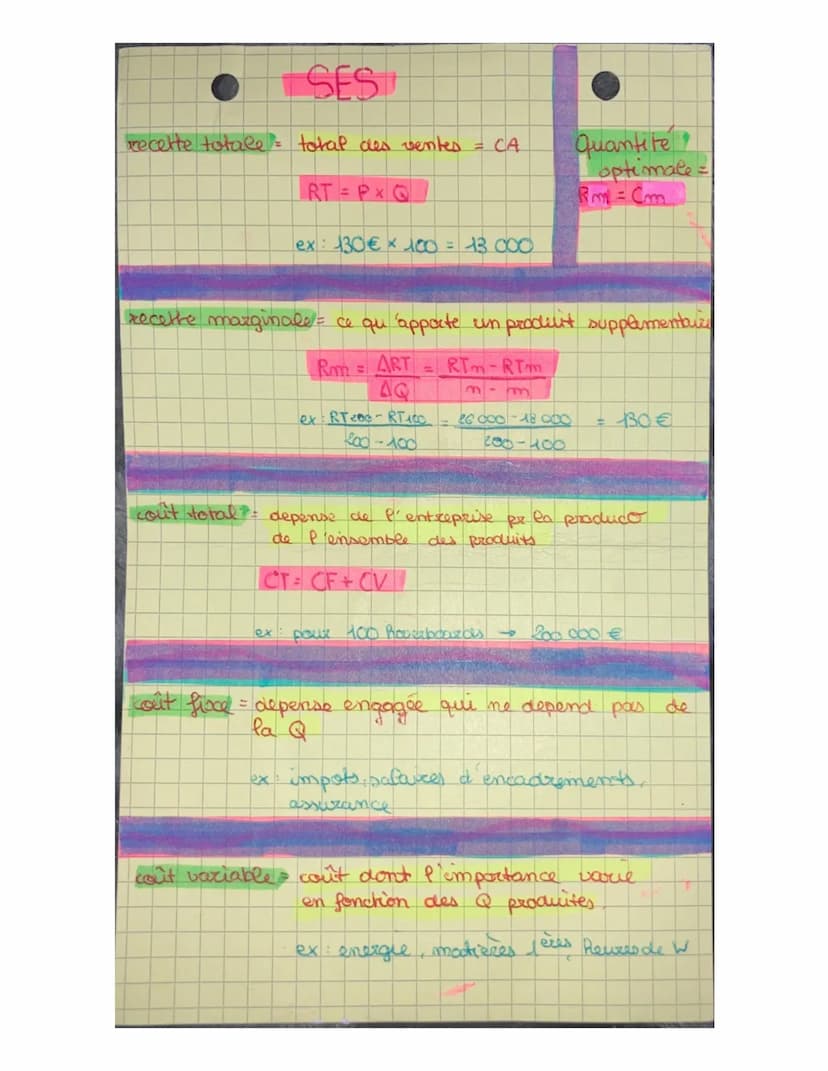 SES
recette totale = total des ventes = CA
RT = P x Q
ex : 130€ x 100 = 13 000
Quantité
optimale =
Rm = Cm
recette marginale = ce qu'apporte un produit supplémentaire
Rm = ΔRT = RTn - RTm
ΔQ n - m
ex : RT200 - RT100 = 26 000 - 13 000 = 130€
200 - 100 200 - 100
coût total = depense de l'entreprise pr la producº
de l'ensemble des produits
CT = CF + CV
ex : pour 100 Hoverboards → 200 000 €
coût fixe = depense engagée qui ne depend pas de
la Q
ex : impots, salaires d'encadrements,
assurance
coût variable = coût dont l'importance varie
en fonction des Q produites.
ex : energie, matières 1ères, heures de W